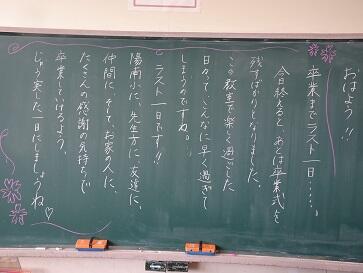 おはよう!!
卒業までラスト一日・・・・。
今日終えると、あとは卒業式を
残すばかりとなりました。
この教室で楽しく過ごした
日々って、こんなに早く過ぎて
しまうのですね。
ラスト一日です!!
陽南小に、先生方に、友達に、
仲間に、そして、お家の人に、
たくさんの感謝の気持ちで
卒業していけるよう、
じゅう実した一日にしましょうね♡